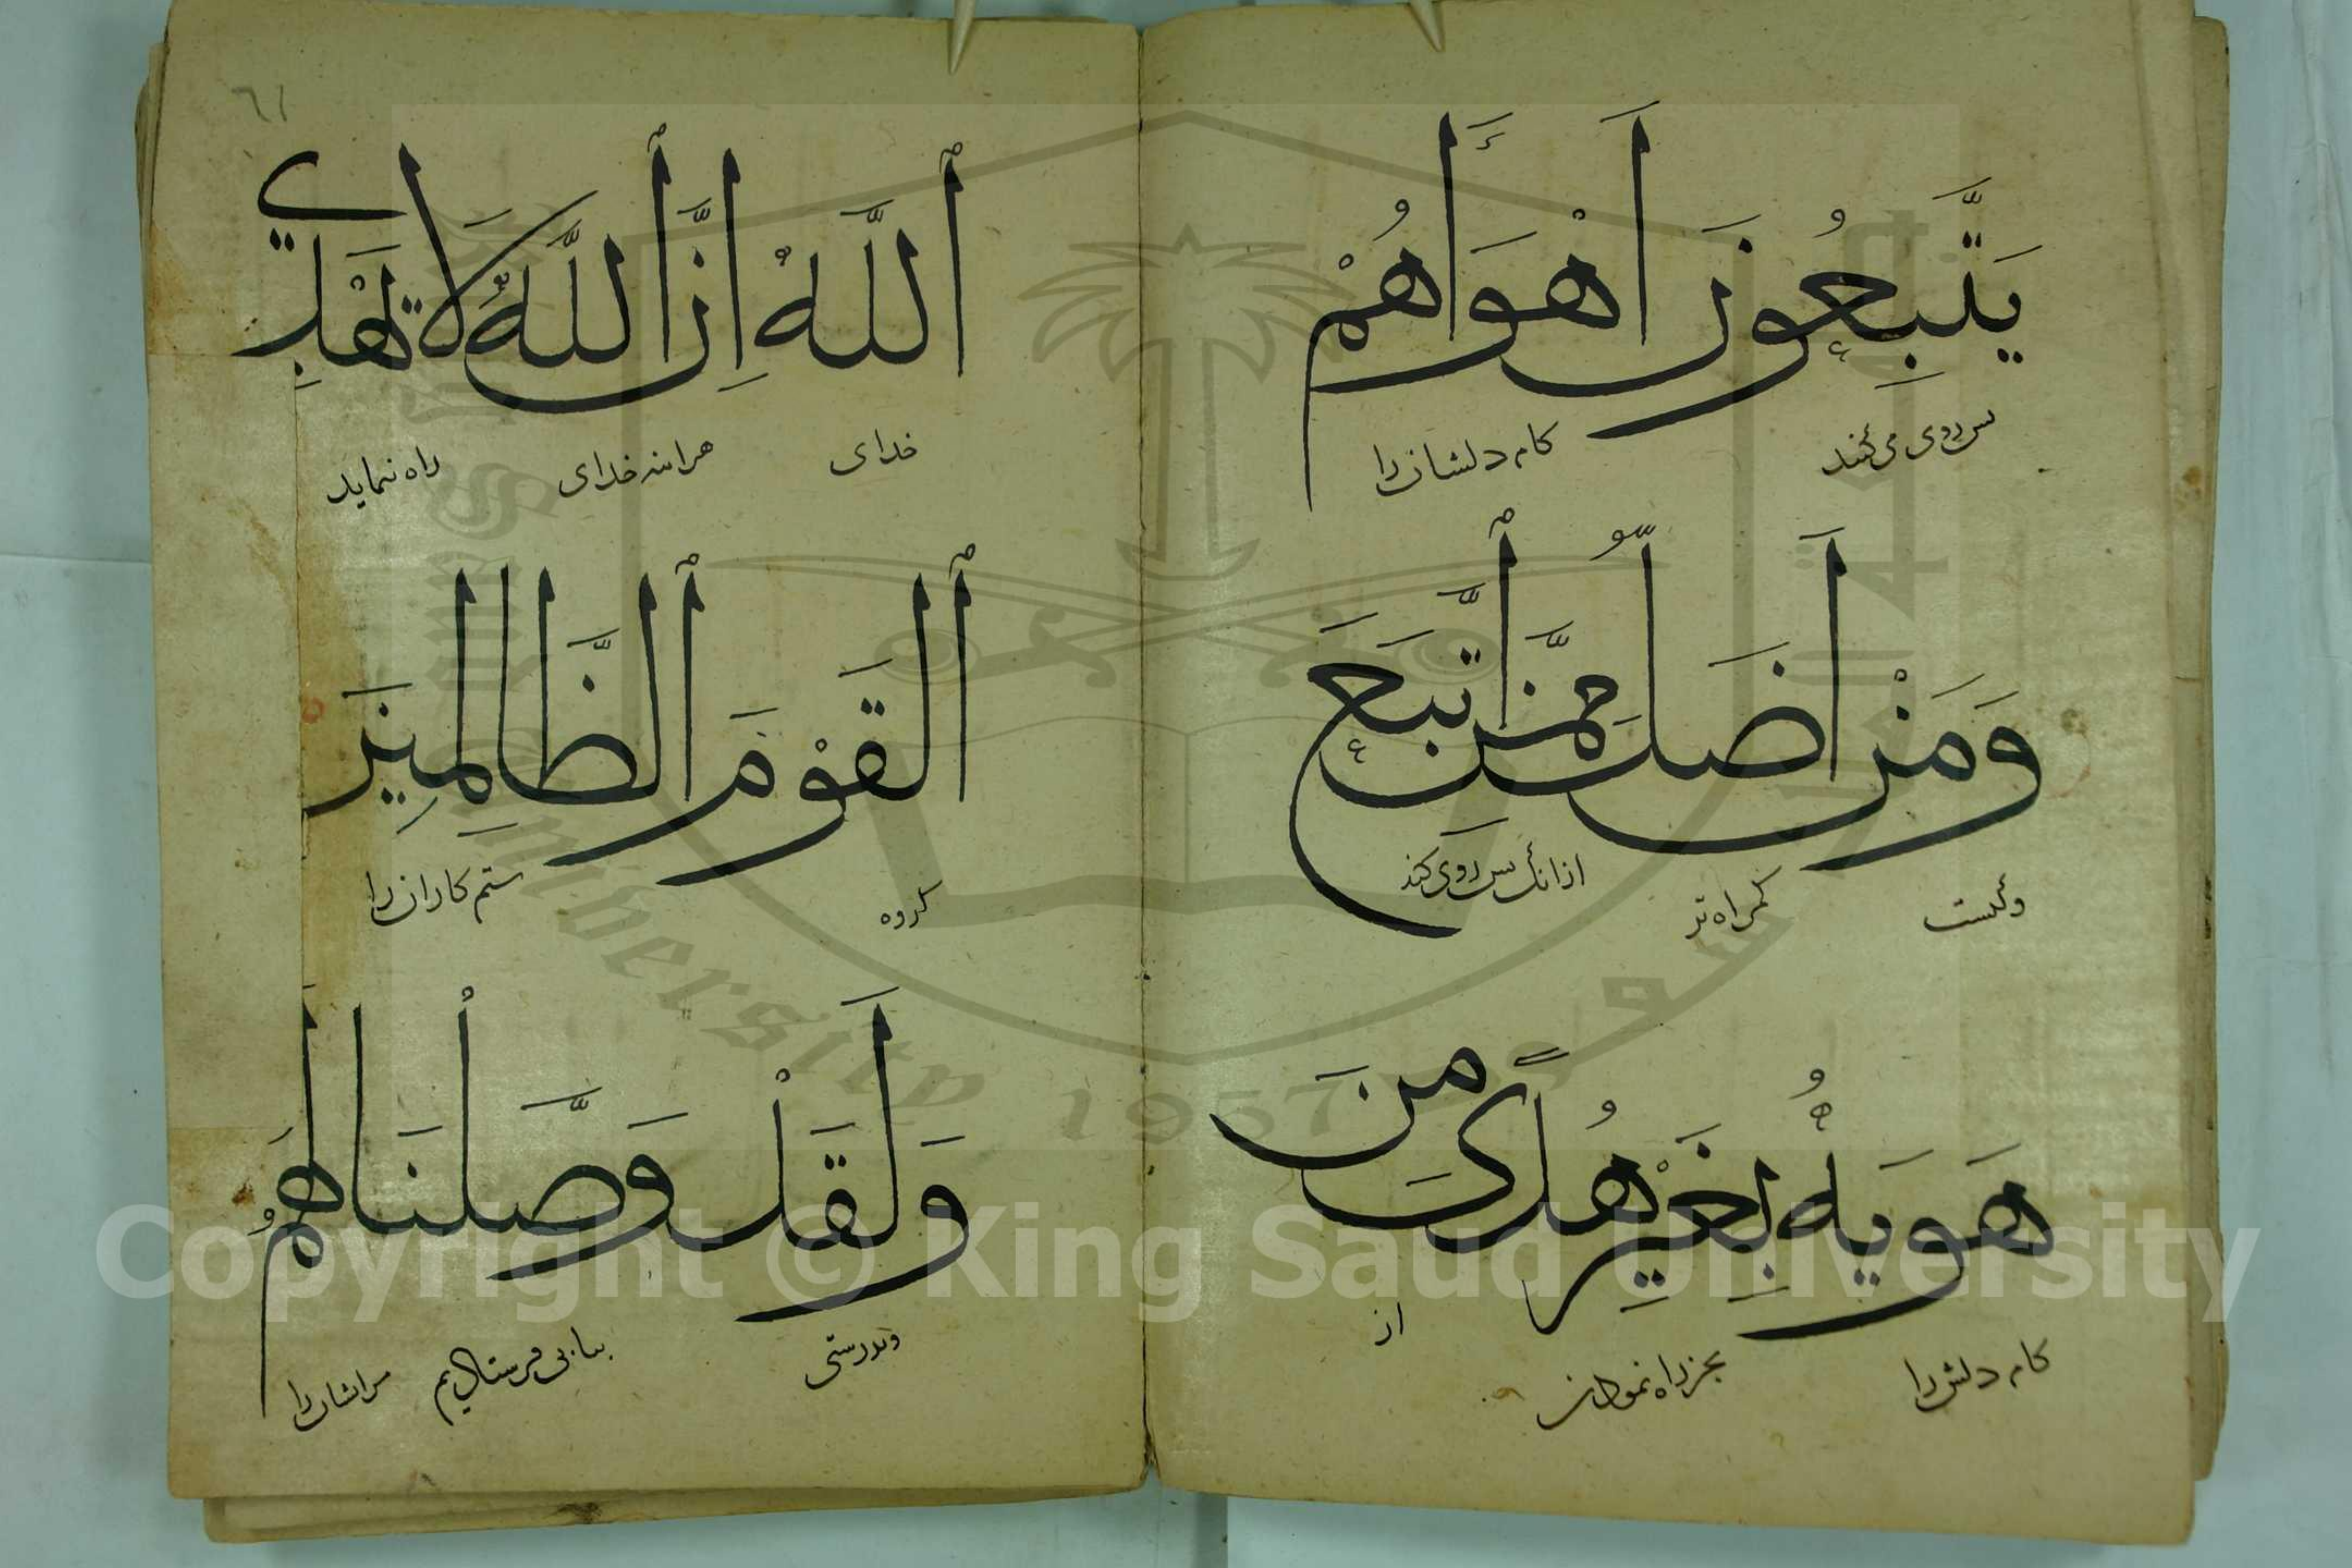 يَتَّبِعُونَ أَهْوَاءَهُمْ
پس روی می کنند کام دلشان را
وَمَنْ أَضَلُّ مِمَّنِ ٱتَّبَعَ
وکیست گمراه تر ازانک پس روی کند
هَوَيهُ بِغَيْرِ هُدًى مِنَ
کام دلش را بجز راه نمودن از
٦١
ٱللَّهِ إِنَّ ٱللَّهَ لَا يَهْدِي
خدای هراینه خدای راه ننماید
ٱلْقَوْمَ ٱلظَّالِمِينَ
گروه ستم کاران را
وَلَقَدْ وَصَّلْنَا لَهُمُ
وبدرستی بیابی فرستاذیم مرایشان را
Copyright © King Saud University
King Saud University
1957